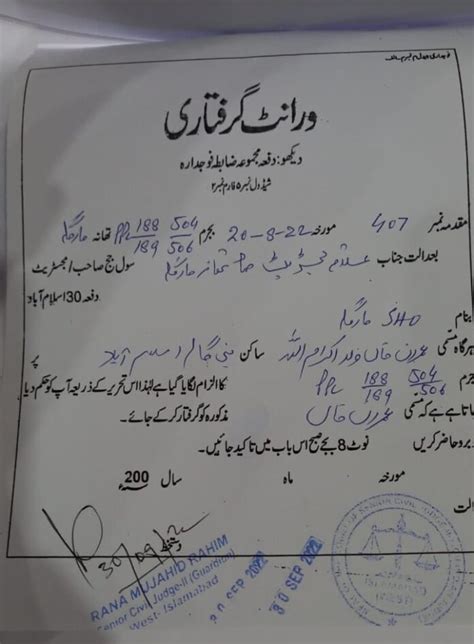 ورانٹ گرفتاری
دیکھو: دفعہ مجموعہ ضابطہ فوجدارہ
شیڈول نمبر ۵ فارم نمبر ۲
مقدمہ نمبر 407 مورخہ 20-8-22 بجرم 504/506 188/189 PPC تھانہ مارگلہ
بعدالت جناب صاحب سول جج صاحب/مجسٹریٹ
دفعہ 30 اسلام آباد
بنام SHO مارگلہ
ہرگاہ مسمی عمران خان ولد اکرام اللہ ساکن بنی گالہ اسلام آباد پر
بجرم 504/506 188/189 PPC کا الزام لگایا گیا ہے لہٰذا اس تحریر کے ذریعہ آپ کو حکم دیا
جاتا ہے کہ مسمی عمران خان مذکورہ کو گرفتار کر کے جائے۔
بروحاضر کریں نوٹ 8 بجے صبح اس باب میں تاکید جانیں۔
مورخہ ماہ سال 200
دستخط
30/09/22
RANA MUJAHID RAHIM
Senior Civil Judge-II (Guardian)
West-Islamabad
30 SEP 2022
30 SEP 2022